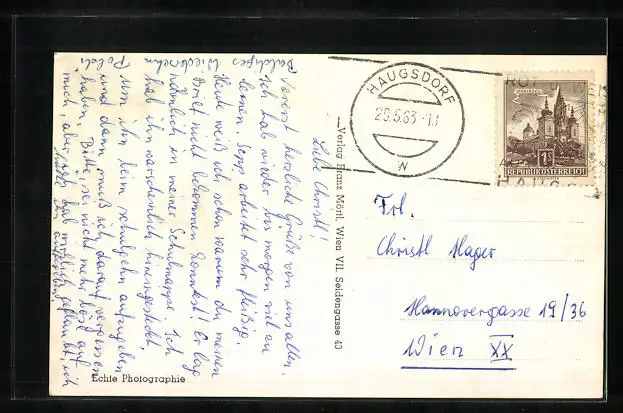 Liebe Christl!
Vorerst herzliche Grüße von uns allen.
Ich hab wieder bis morgen viel zu
lernen. Sepp arbeitet sehr fleißig.
Heute weiß ich schon warum du meinen
Brief nicht bekommen konntest! Er lag
nämlich in meiner Schulmappe. Ich
hab ihn wahrscheinlich hineingesteckt,
um ihn beim schulgehn aufzugeben
und dann muß ich darauf vergessen
haben. Bitte, sei nicht mehr bös auf
mich, aber
hab wirklich geglaubt, ich
ihn aufgegeben!
Baldiges Wiedersehn
Poldi
Echte Photographie
—Verlag Franz Mörtl, Wien VII. Seidengasse 40
HAUGSDORF
29.5.63
W
1S
REPUBLIK ÖSTERREICH
Frl.
Christl Hager
Hannovergasse 19/36
Wien XX